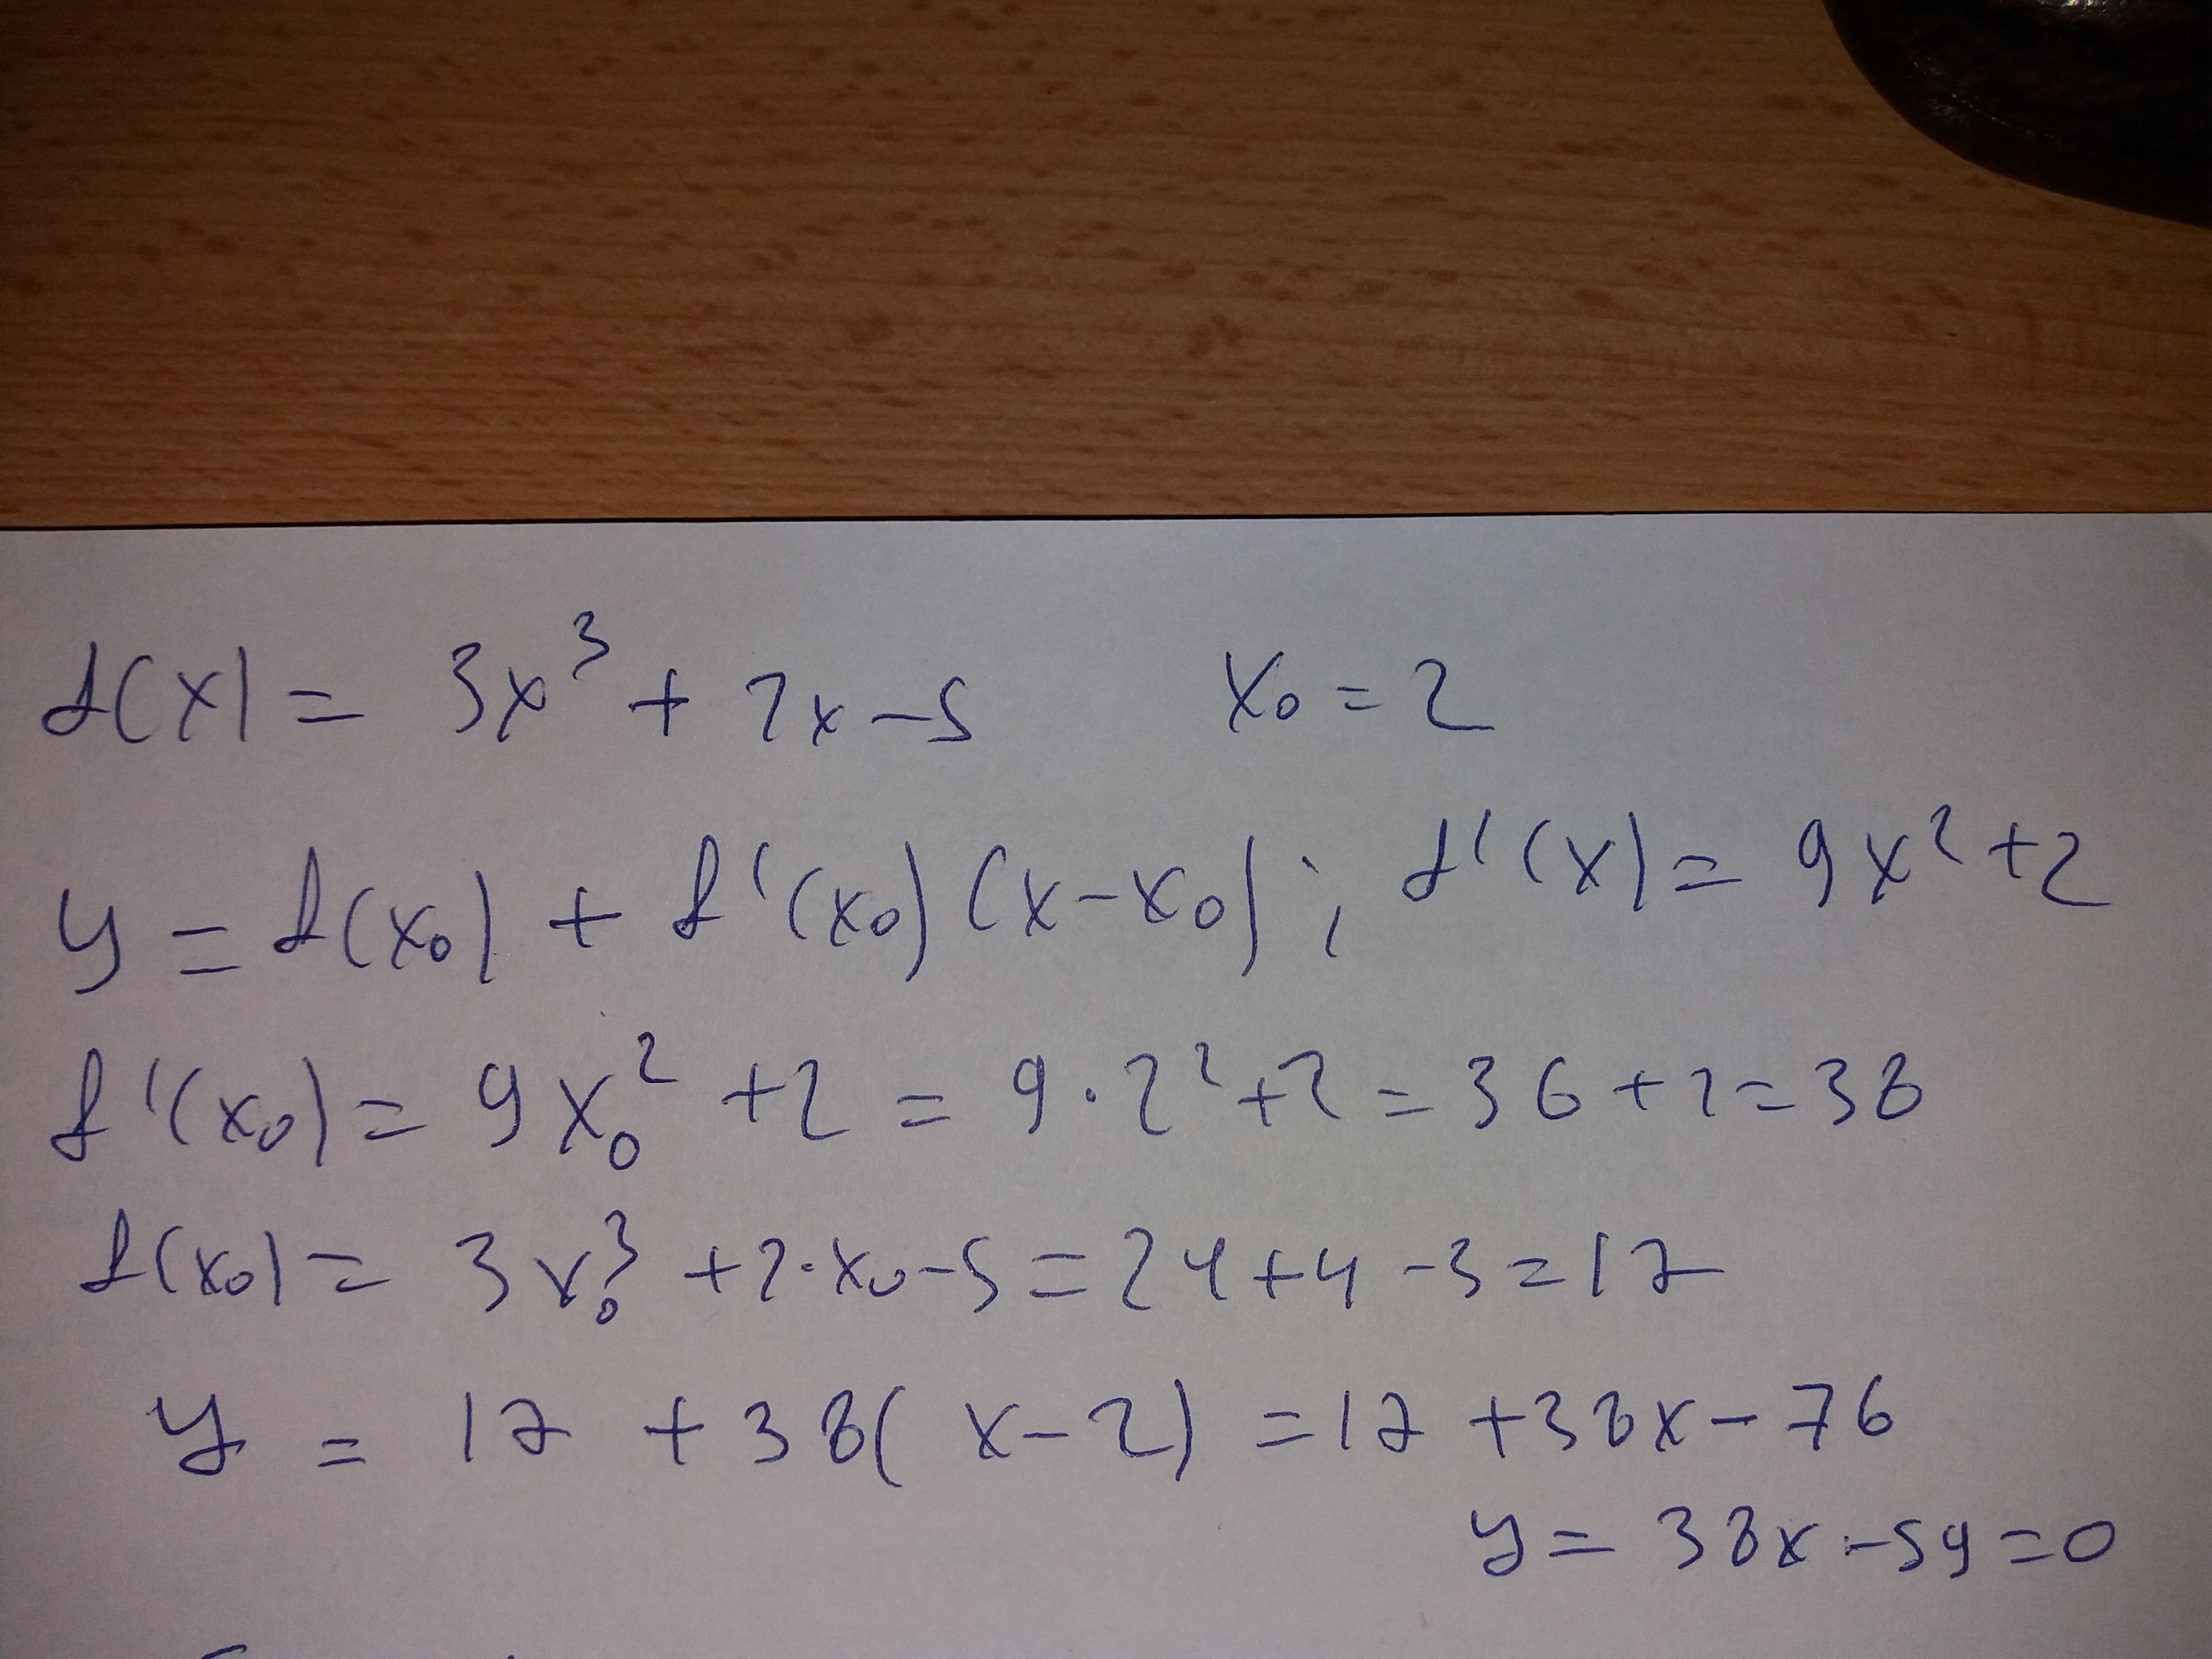 f(x) = 3x³ + 2x - 5 x₀ = 2
y = f(x₀) + f'(x₀)(x - x₀); f'(x) = 9x² + 2
f'(x₀) = 9x₀² + 2 = 9·2² + 2 = 36 + 2 = 38
f(x₀) = 3x₀³ + 2·x₀ - 5 = 24 + 4 - 5 = 17
y = 17 + 38(x - 2) = 17 + 38x - 76
y = 38x - 59 = 0